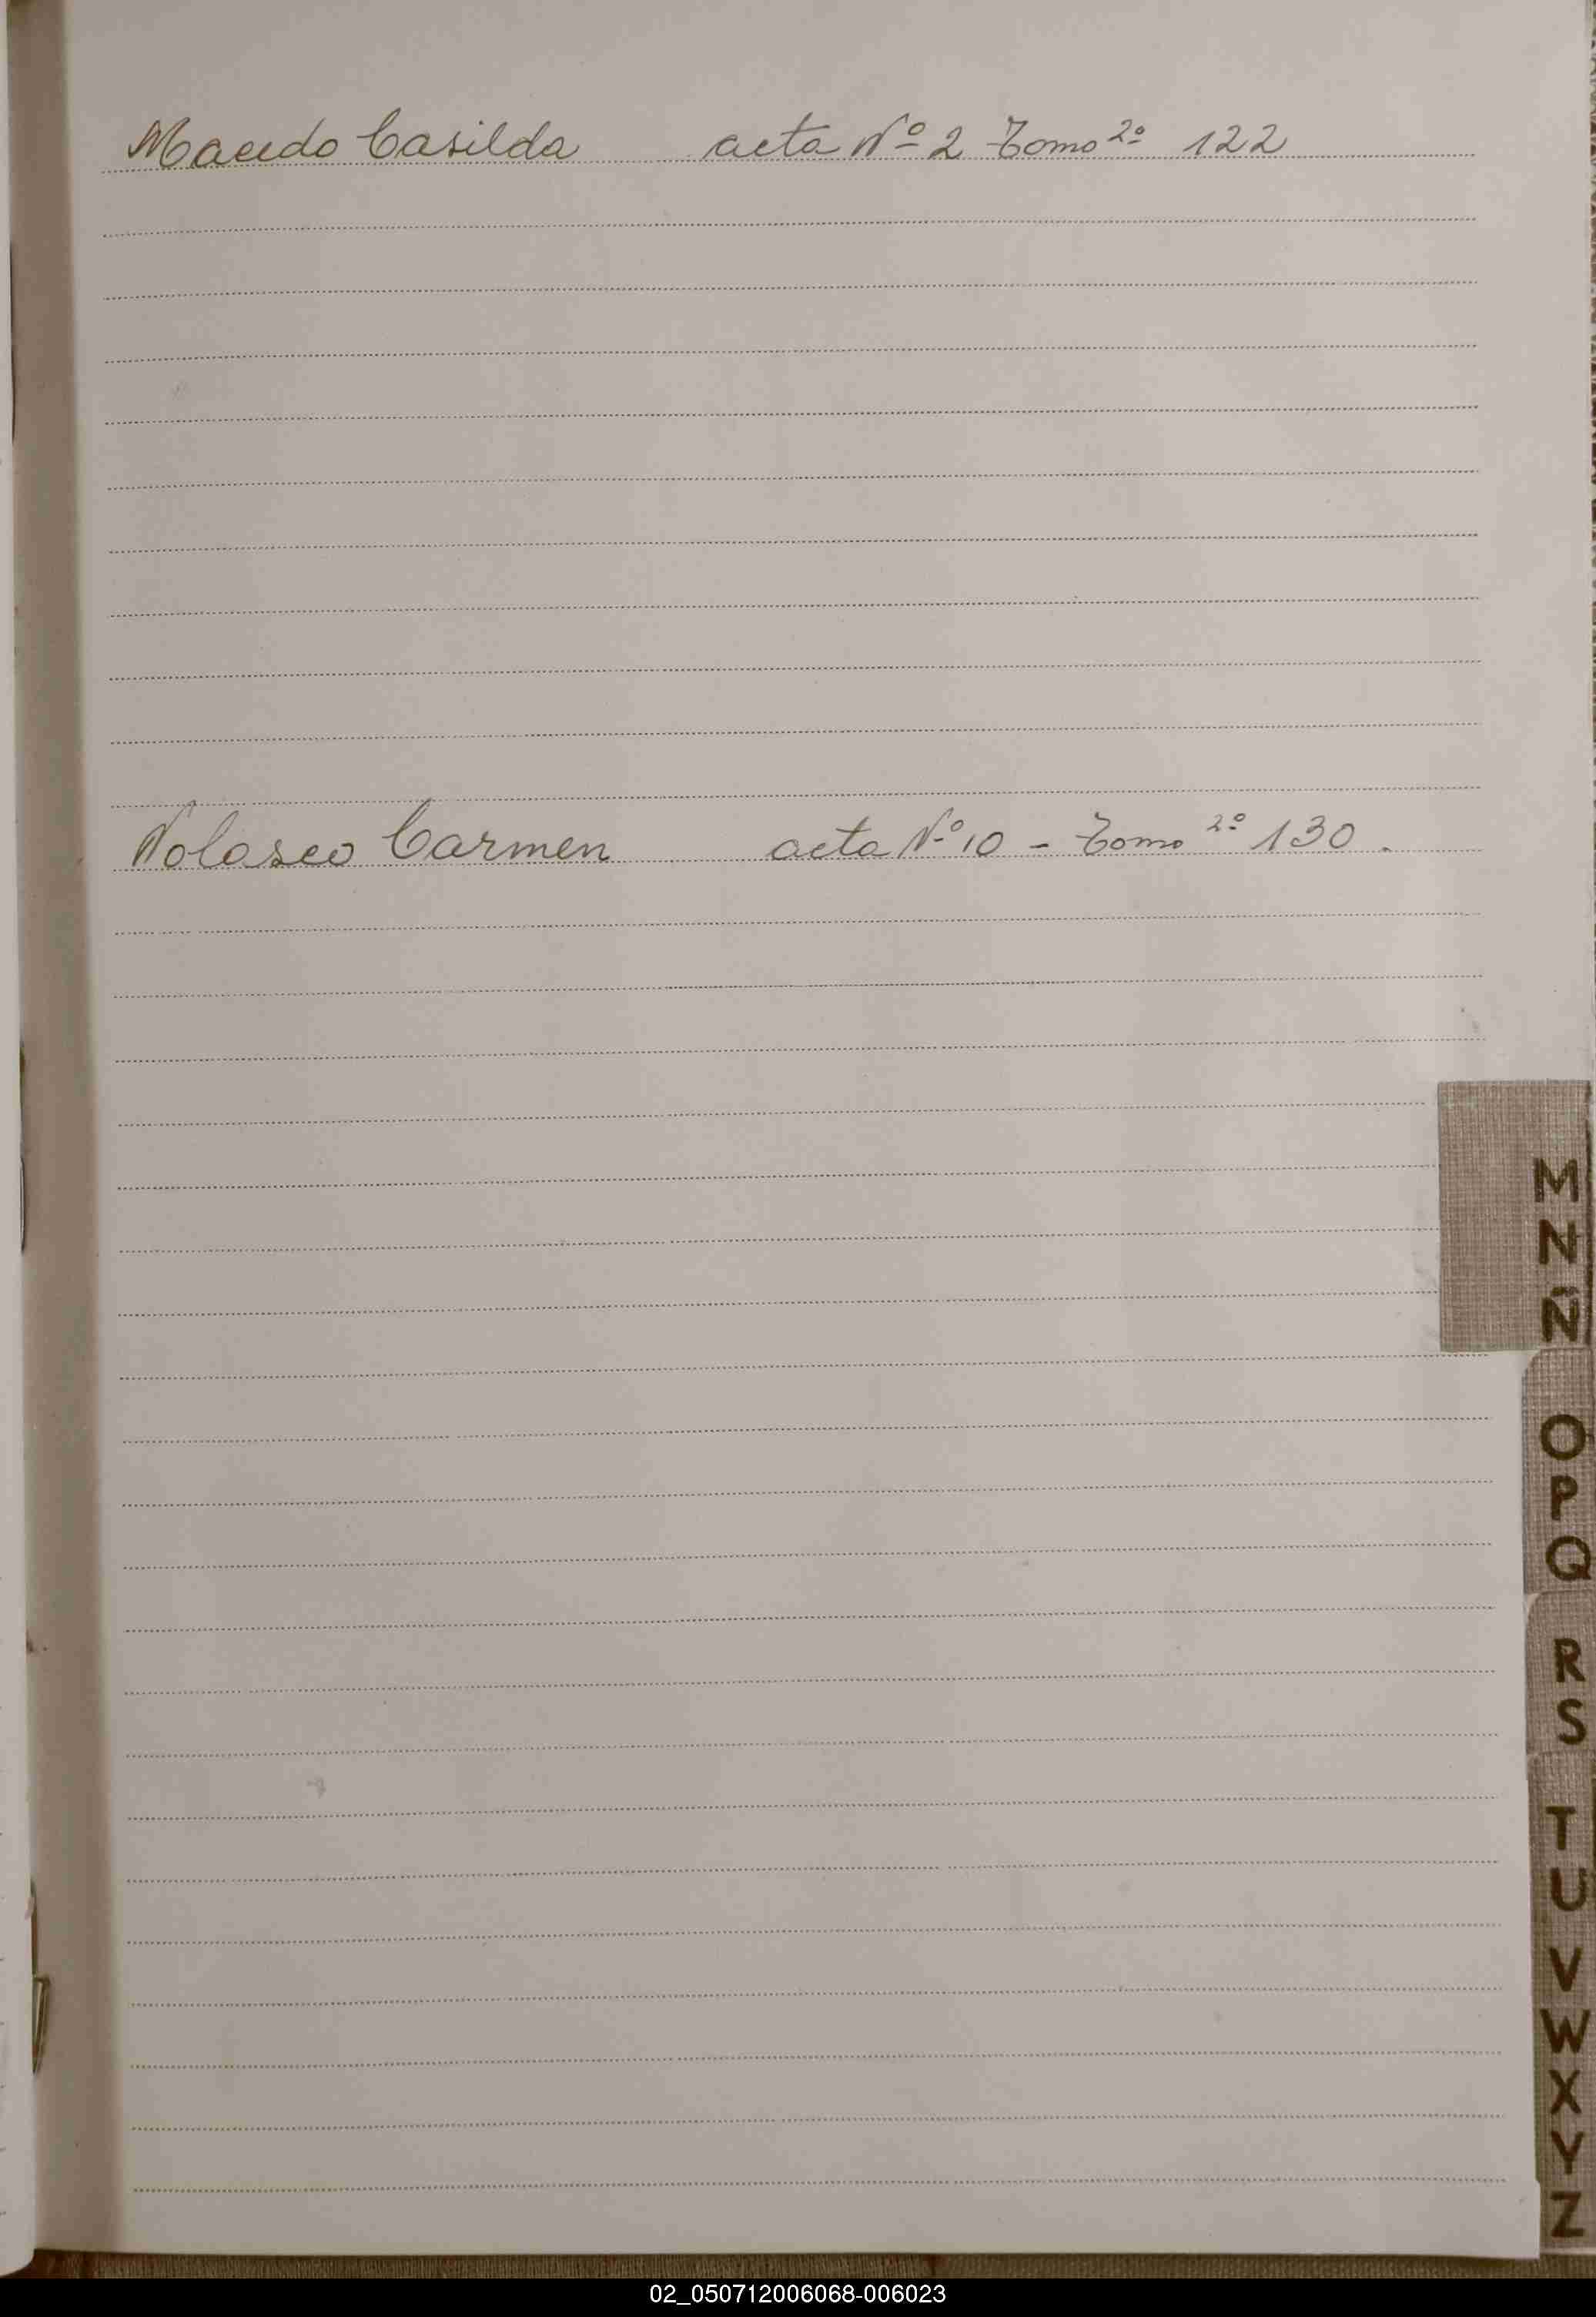 Macedo Casilda acta Nº 2 Tomo 2º 122
Nolasco Carmen acta Nº 10 - Tomo 2º 130.
M
N
Ñ
O
P
Q
R
S
T
U
V
W
X
Y
Z
02_050712006068-006023